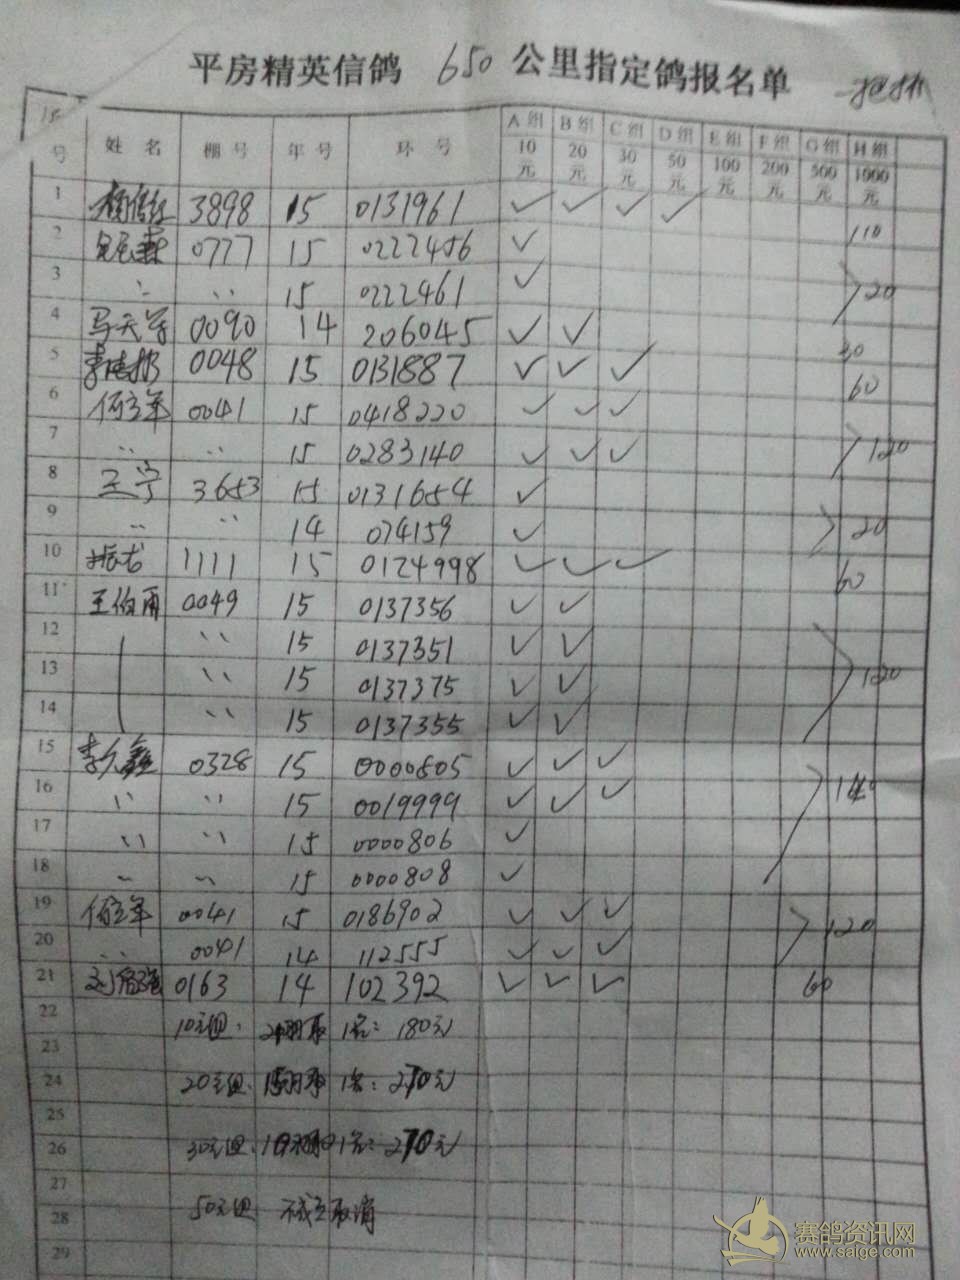 平房精英信鸽 650 公里指定鸽报名单
号 姓名 棚号 年号 环号 A组 B组 C组 D组 E组 F组 G组 H组
10元 20元 30元 50元 100元 200元 500元 1000元
1 3898 15 0131961 ✓ ✓ ✓ ✓ 110
2 0777 15 0222456 ✓
3 〃 〃 15 0222461 ✓ 20
4 0090 14 206045 ✓ ✓ 30
5 0048 15 0131887 ✓ ✓ ✓ 60
6 0041 15 0418220 ✓ ✓ ✓
7 〃 〃 15 0283140 ✓ ✓ ✓ 120
8 王宁 3653 15 0131654 ✓
9 〃 〃 14 074159 ✓ 20
10 振龙 1111 15 0124998 ✓ ✓ ✓ 60
11 王伯雨 0049 15 0137356 ✓ ✓
12 〃 15 0137351 ✓ ✓
13 〃 15 0137375 ✓ ✓ 120
14 〃 15 0137355 ✓ ✓
15 李久鑫 0328 15 0000805 ✓ ✓ ✓
16 〃 〃 15 0019999 ✓ ✓ ✓ 140
17 〃 〃 15 0000806 ✓
18 〃 〃 15 0000808 ✓
19 0041 15 0186902 ✓ ✓ ✓
20 〃 0041 14 112555 ✓ ✓ ✓ 120
21 0163 14 102392 ✓ ✓ ✓ 60
22 10元组 1名: 180元
23
24 20元组 1名: 270元
25
26 30元组 1名: 270元
27
28 50元组 不成立取消
29
赛鸽资讯网
www.saige.com